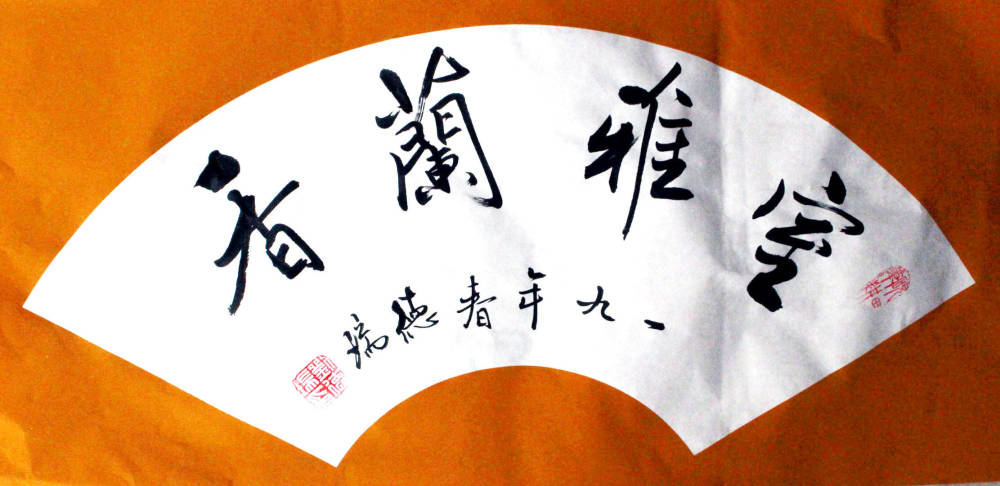 室雅蘭香
一九年春德瑞